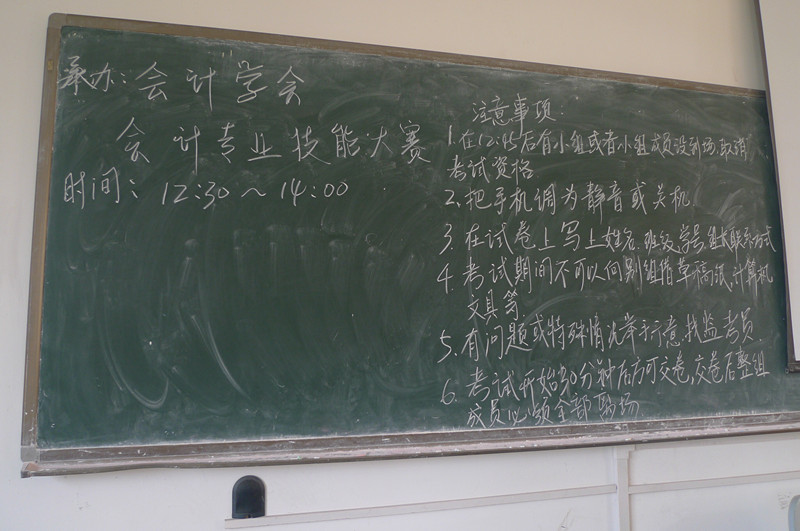 承办：会计学会
会计专业技能大赛
时间：12:30～14:00
注意事项：
1.在12:45后有小组或者小组成员没到场,取消
考试资格
2、把手机调为静音或关机
3、在试卷上写上姓名、班级,学号,组长联系方式
4、考试期间不可以向别组借草稿纸,计算机
文具等.
5、有问题或特殊情况举手示意,找监考员
6、考试开始30分钟后方可交卷,交卷后整组
成员必须全部离场.